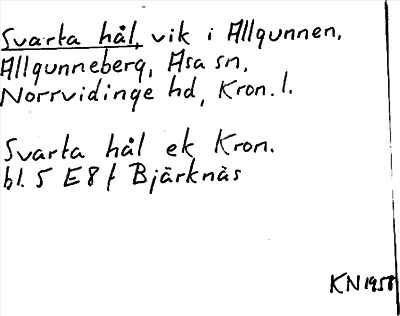 Svarta hål, vik i Allgunnen,
Allgunneberg, Asa sn,
Norrvidinge hd, Kron. l.
Svarta hål ek Kron.
bl. 5 E8f Bjärknäs
KN 1958